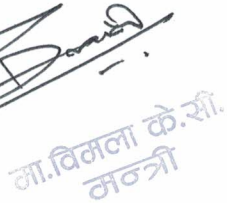 मा.विमला के.सी.
मन्त्री